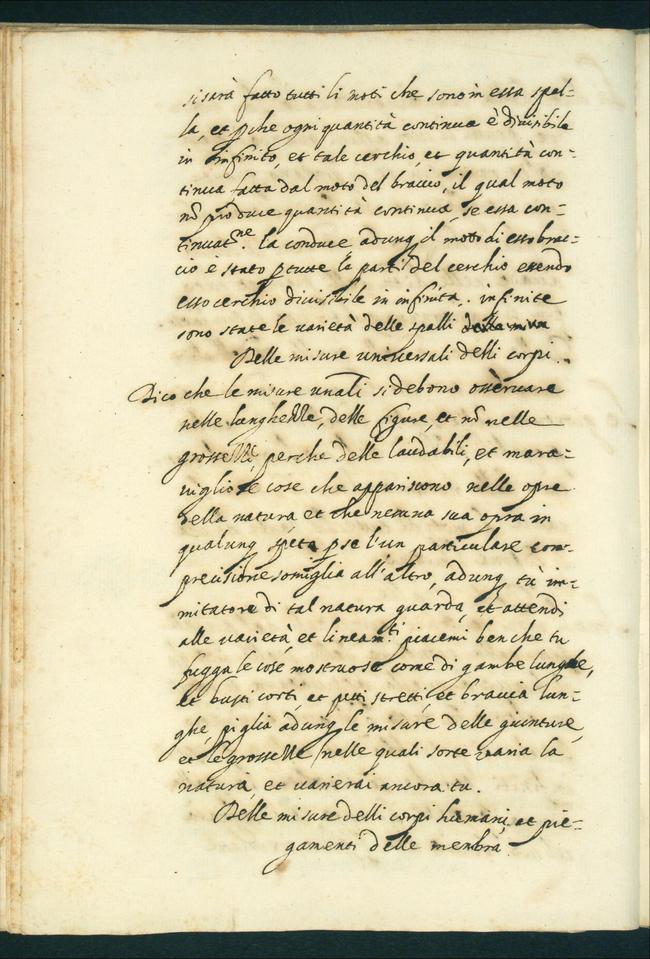 si sarà fatto tutti li moti che sono in essa spal=
la, et pche ogni quantità continua è divisibile
in infinito, et tale cerchio, et quantità con=
tinua fatta dal moto del braccio, il qual moto
nõ produce quantità continua, se essa con=
tinuatne. la conduce adunq il moto di esso brac=
cio è stato p tutte le parti del cerchio essendo
esso cerchio divisibile in infinita.. infinite
sono state le varietà delle spalli
Delle misure universali delli corpi..
Dico che le misure unali si debono osservare
nelle lunghezze, delle figure, et nõ nelle
grossezze, perche delle laudabili, et mara=
vigliose cose che appariscono nelle opre
della natura, et che nessuna sua opra in
qualunq spetie p se l'un particulare con
precisione somiglia all'altro, adunq tu im=
mitatore di tal natura guarda, et attendi
alle varietà, et lineamti. piacemi ben che tu
fugga le cose mostruose come di gambe lunghe,
et busti corti, et petti stretti, et braccia lun=
ghe, piglia adunq le misure delle giunture,
et le grossezze nelle quali sorte varia la
natura, et varierai ancora tu.
Delle misure delli corpi humani, et pie=
gamenti delle membra.